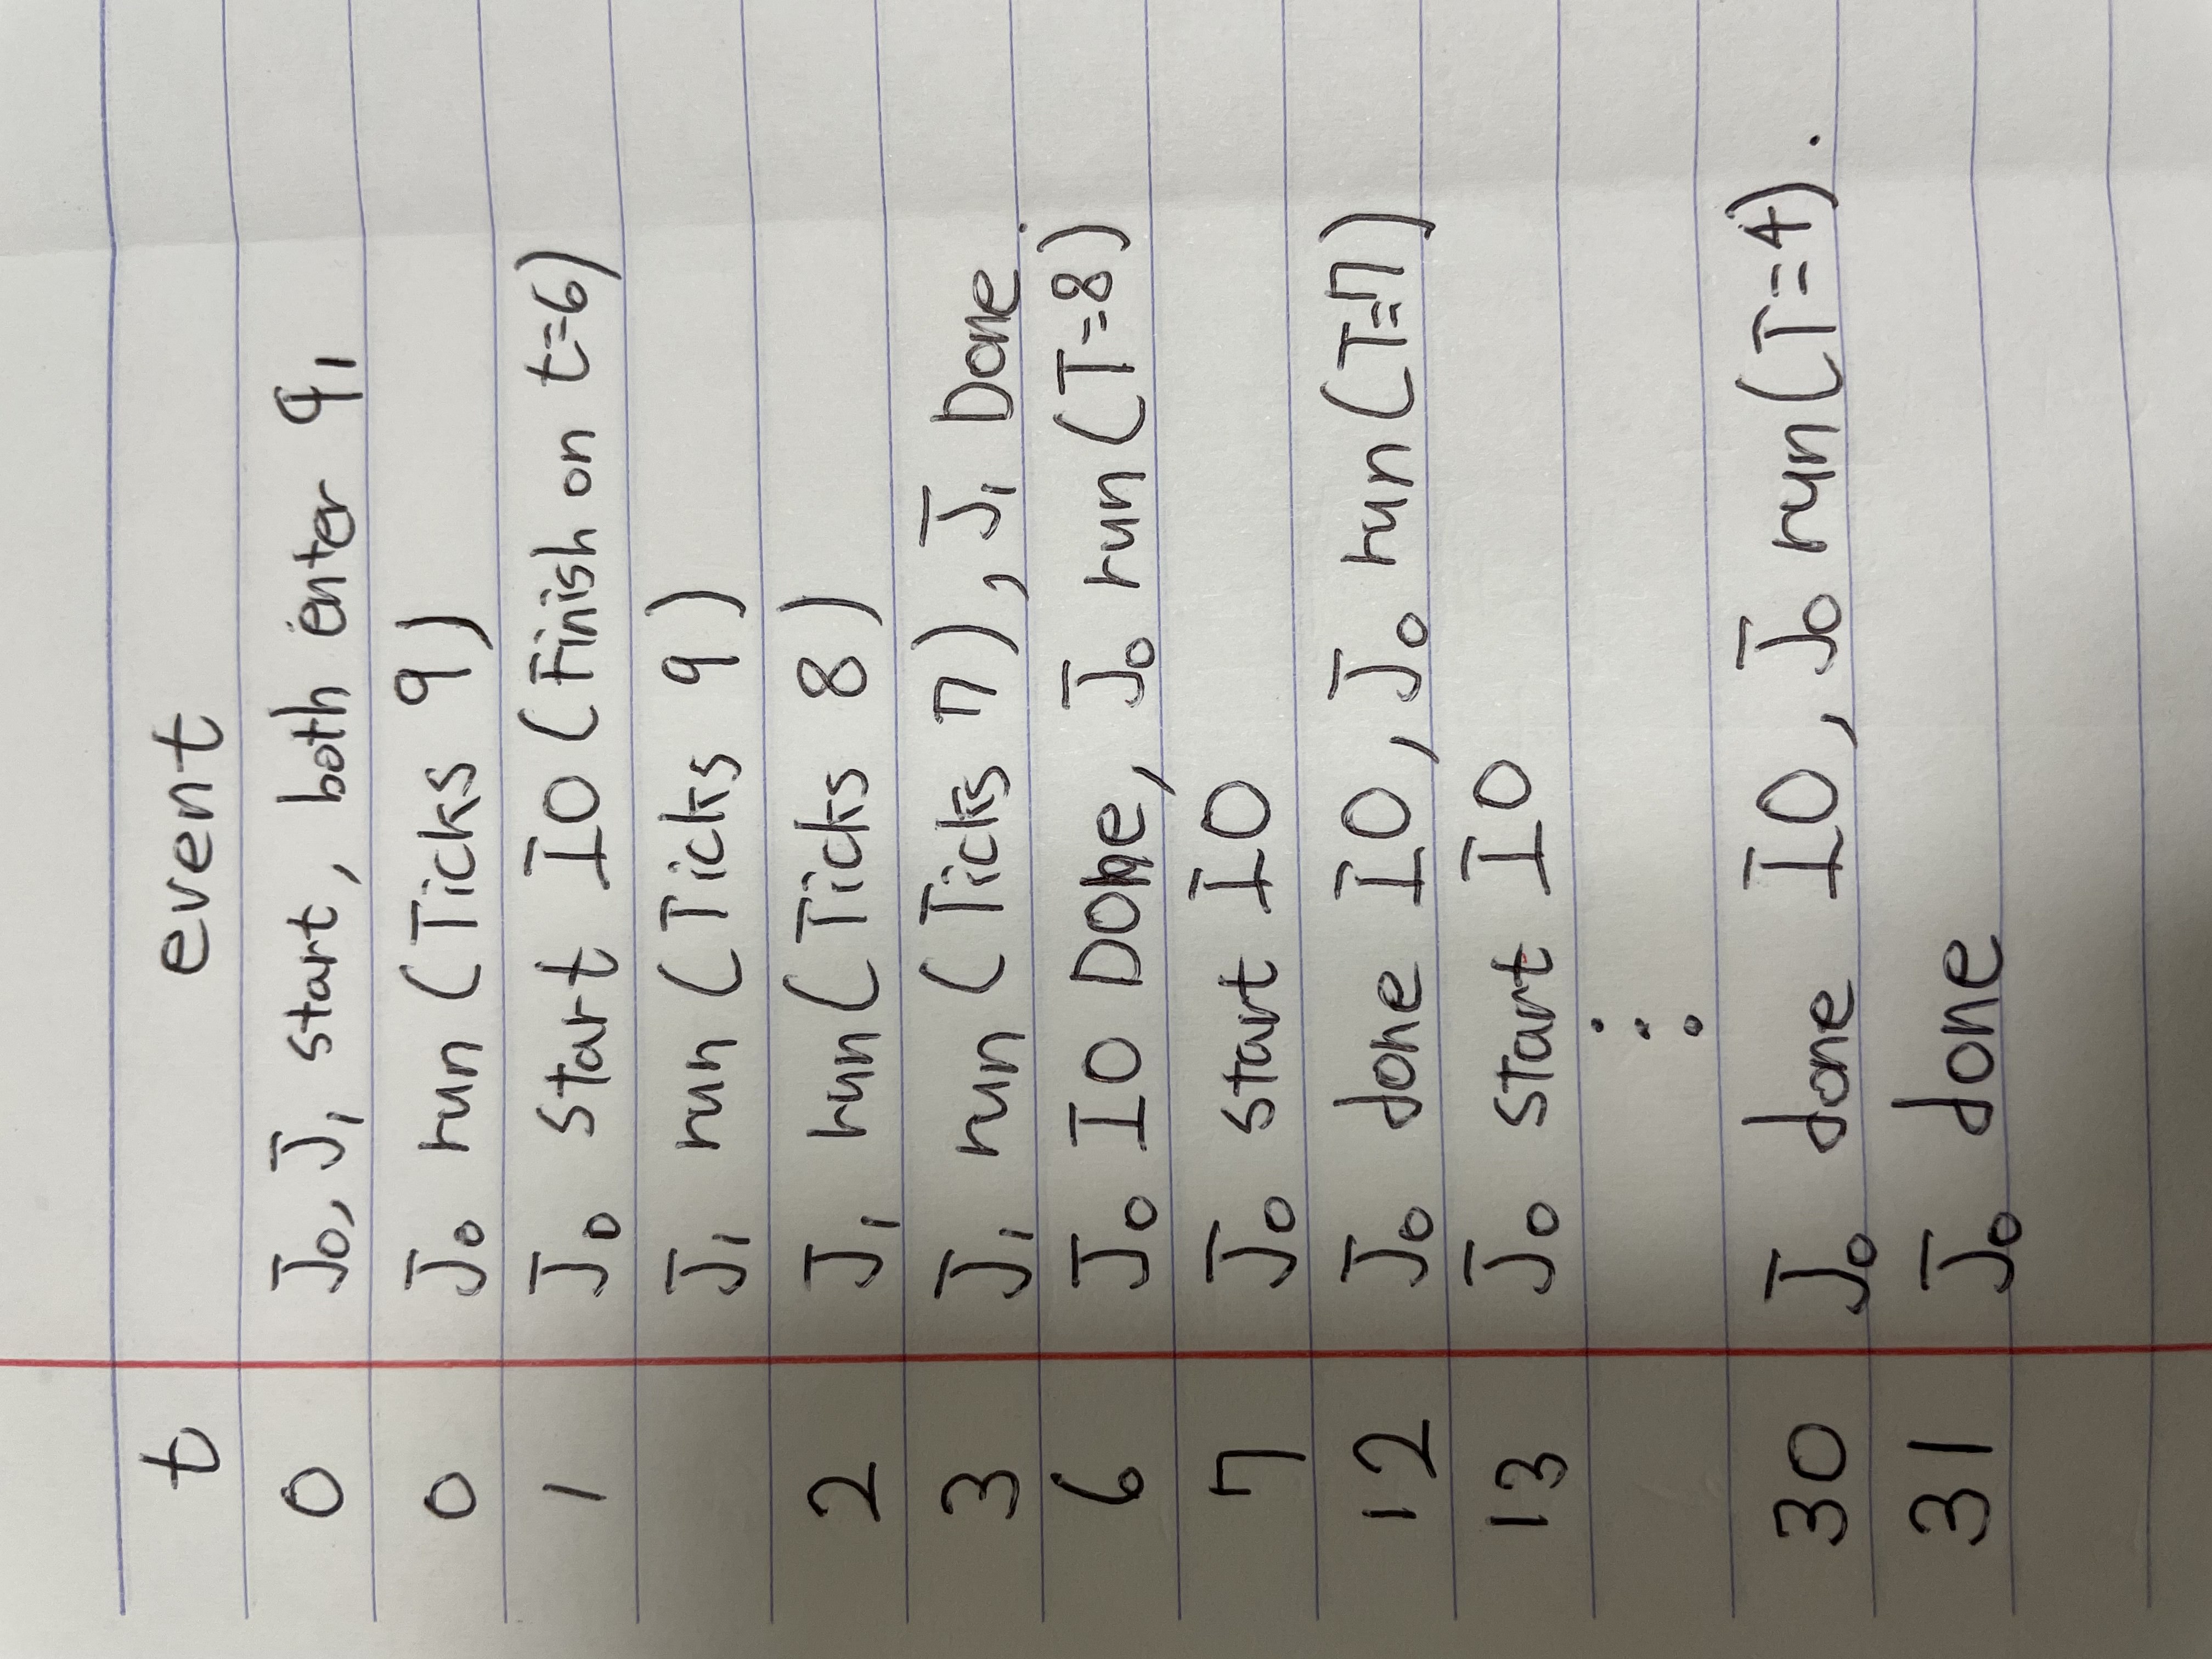 t event
0 J₀, J₁ start, both enter q₁
0 J₀ run (Ticks 9)
1 J₀ start IO (Finish on t=6)
J₁ run (Ticks 9)
2 J₁ run (Ticks 8)
3 J₁ run (Ticks 7), J₁ Done.
6 J₀ IO Done, J₀ run (T=8)
7 J₀ start IO
12 J₀ done IO, J₀ run (T=7)
13 J₀ start IO
⋮
30 J₀ done IO, J₀ run (T=4).
31 J₀ done